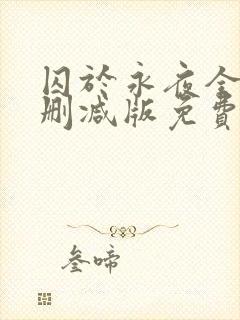 囚於永夜全
删减版免費
叄啼